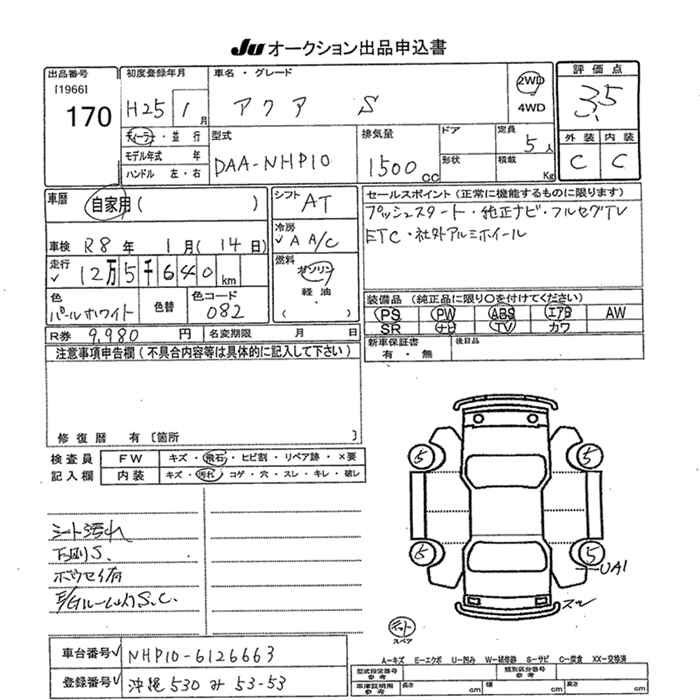 JU オークション出品申込書
出品番号
[1966]
170
初度登録年月
H25 1月
車名・グレード
アクア S
2WD
4WD
評価点
3.5
外装 内装
C C
ディーラー・並行
モデル年式 年
ハンドル 左・右
型式
DAA-NHP10
排気量
1500cc
ドア
形状
定員
5人
積載
Kg
車歴
自家用( )
車検 R8年 1月(14日)
走行
✓ 12万5千640km
色
パールホワイト
色替
色コード
082
R券 9,980円
名変期限 月 日
シフト
AT
冷房
✓AA/C
燃料
ガソリン
軽油
・
( )
セールスポイント(正常に機能するものに限ります)
プッシュスタート・純正ナビ・フルセグTV
ETC・社外アルミホイール
装備品(純正品に限り〇を付けてください)
PS PW ABS エアB AW
SR ナビ TV カワ
新車保証書
有・無
後日品
注意事項申告欄(不具合内容等は具体的に記入して下さい)
修復歴 有〔箇所 〕
検査員
記入欄
FW キズ・飛石・ヒビ割・リペア跡・×要
内装 キズ・汚れ・コゲ・穴・スレ・キレ・破レ
シート汚れ
下廻りS.
ボウセイ有
E/GルームS.C.
5 5
5 5
UA1
スレ
スペア
車台番号✓ NHP10-6126663
登録番号✓ 沖縄 530 み 53-53
A-キズ E-エクボ U-凹み W-補修跡 S-サビ C-腐食 XX-交換済
型式指定番号
参考
類別区分番号
参考
車庫証明用
参考
長さ cm 幅 cm 高さ cm